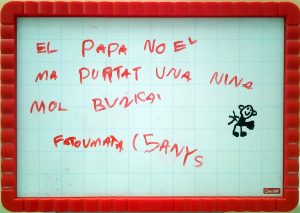 EL PAPA NOEL
MA PURTAT UNA NINA
MOL BUNICA
FATOUMATA (5ANYS